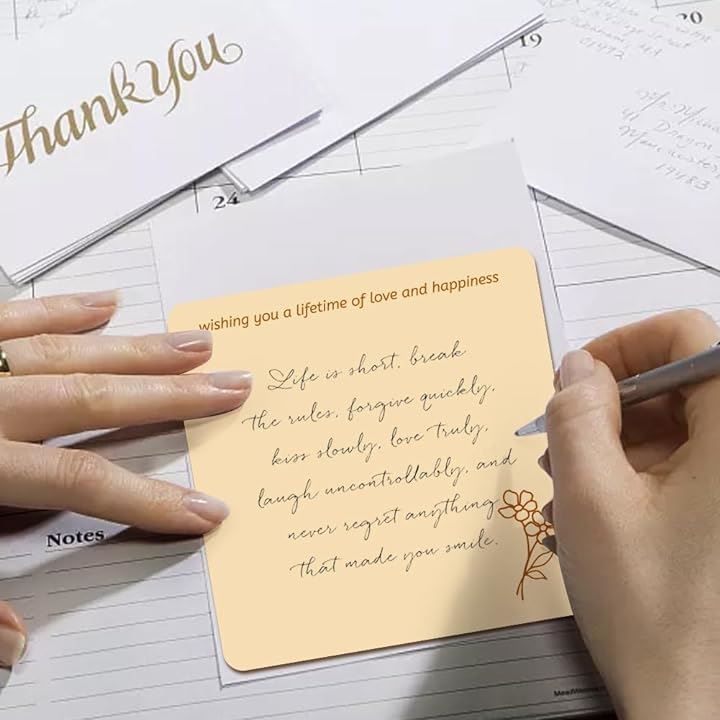 Thank You
19
20
01992
Mr. Mich
41 Dragon
Manchester
19483
24
wishing you a lifetime of love and happiness
Life is short, break
the rules, forgive quickly,
kiss slowly, love truly,
laugh uncontrollably, and
never regret anything
that made you smile.
Notes